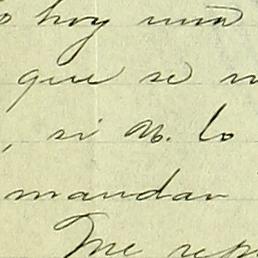 hoy una
que se
, si V. lo
mandar
Me rep